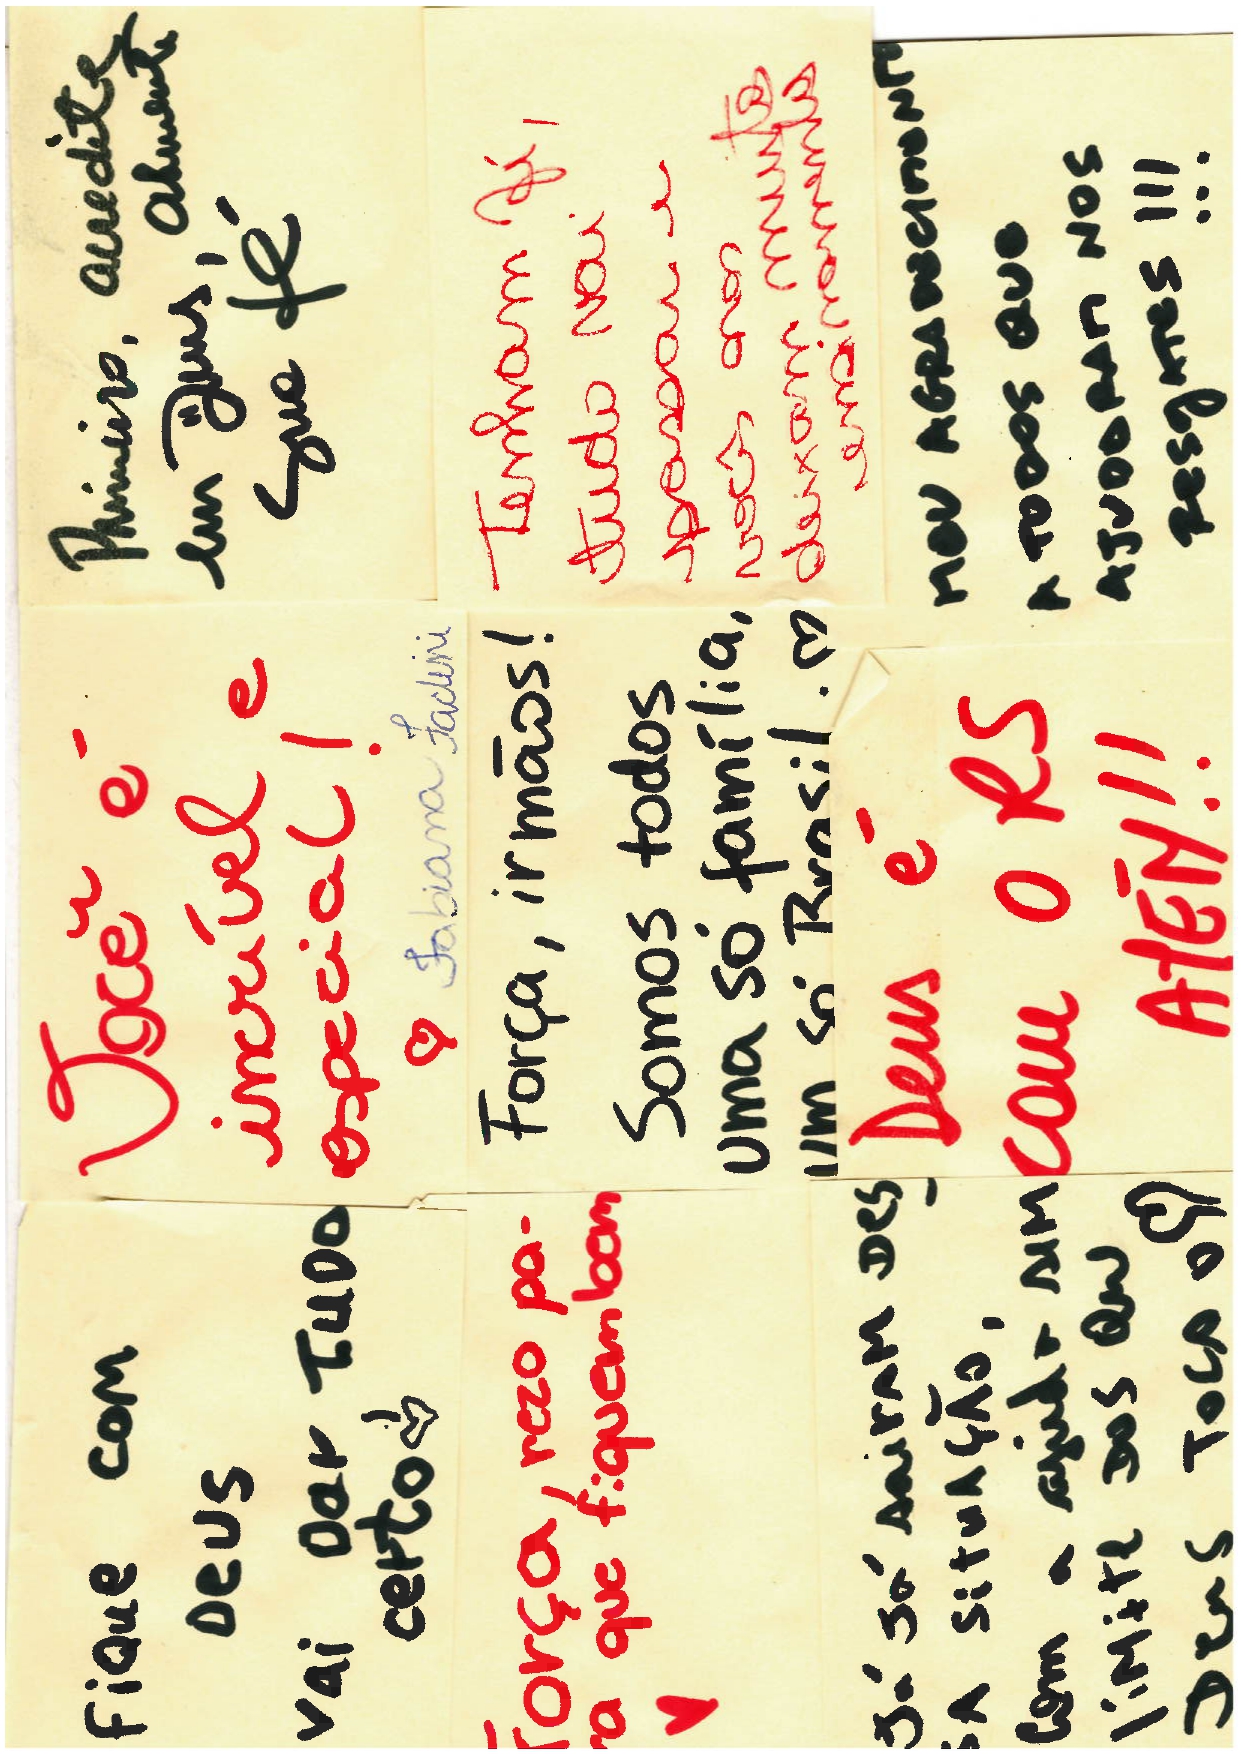 Fique com
Deus
vai Dar Tudo
certo!
Você é
incrível e
especial!
Fabiana Fadini
Primeiro, acredite
em Deus, almente
Sua fé
Força, rezo pa-
ra que fiquem bem
Força, irmãos!
Somos todos
uma só família,
um só Brasil.
Tenham fé,
tudo vai
passar e
vocês nos
deixam muito
ensinamento
Já Já sairam Des
SA situAÇÃO,
Com a ajuda sIM
límite Dos Qu
Deus Toca o
Deus é
com o RS
AMÉM!!
MEU AGRADECIMENTO
A TODOS QUE
AJUDARAM NOS
RESgATES !!!